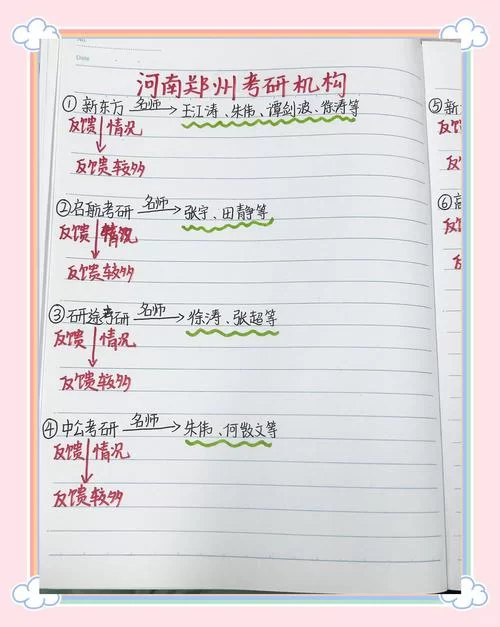 No.
Date
河南郑州考研机构
① 新东方 名师 王江涛、朱伟、谭剑波、徐涛等
反馈 情况
反馈较多
② 启航考研 名师 张宇、田静等
反馈 情况
反馈较多
③ 研途考研 名师 徐涛、张超等
反馈 情况
反馈较多
④ 中公考研 名师 朱伟、何敬文等
反馈 情况
反馈较多
⑤ 新
反馈
⑥ 高
反馈